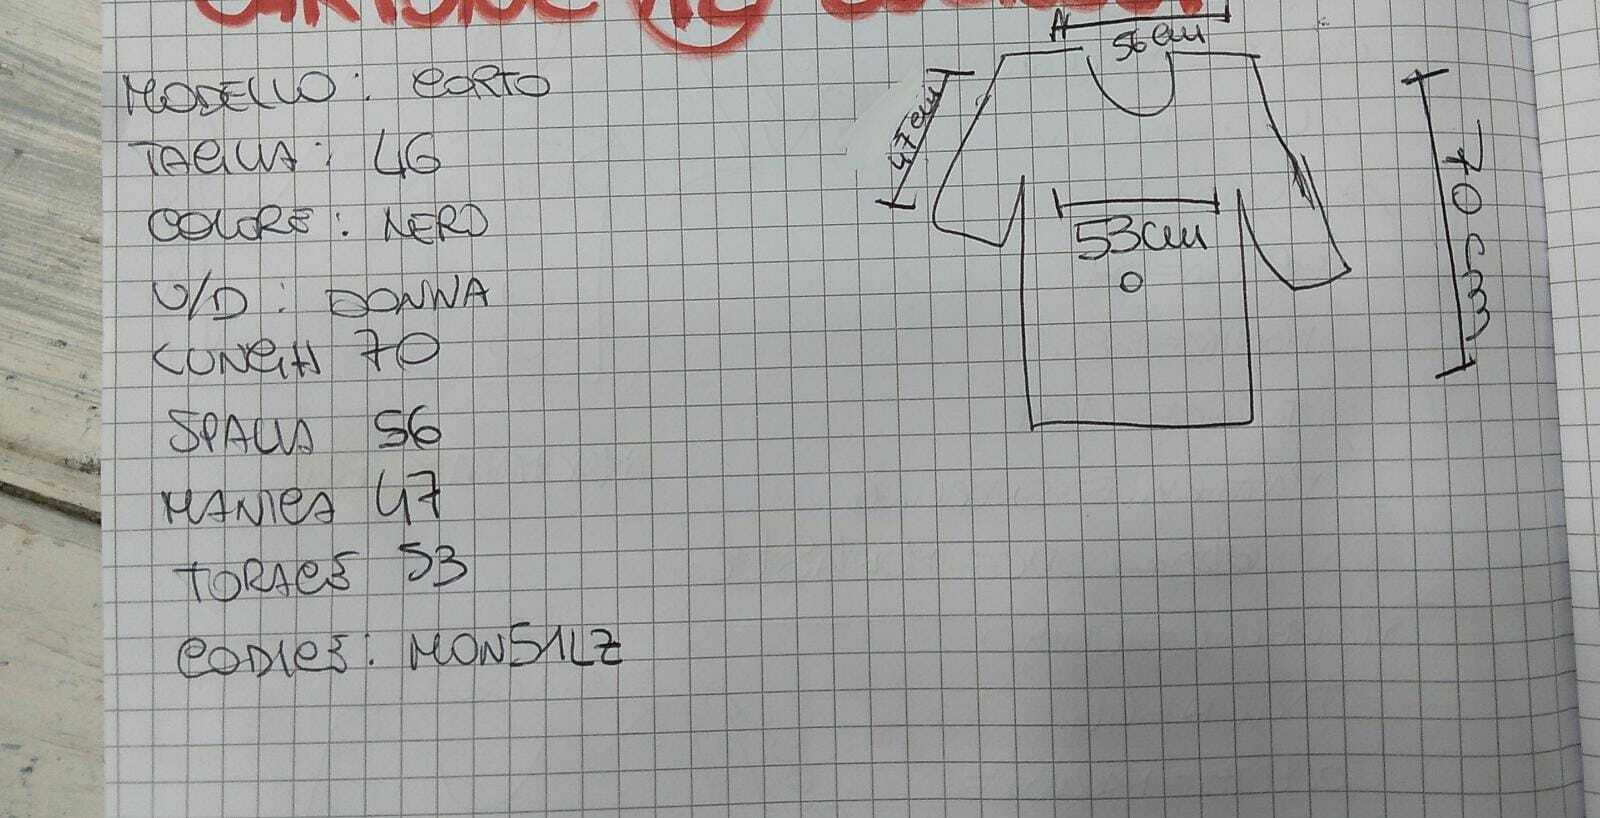 MODELLO: CORTO
TAGLIA: 46
COLORE: NERO
U/D: DONNA
LUNGH 70
SPALLA 56
MANICA 47
TORACE 53
CODICE: MONS1LZ
56 cm
47 cm
53 cm
70 cm